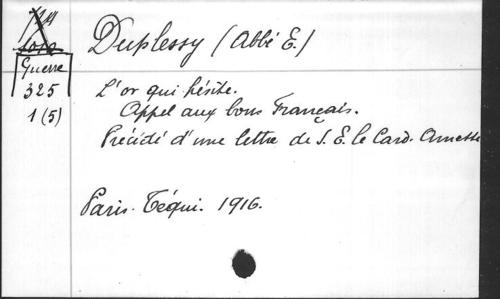 Duplessy (Abbé E.)
Guerre
325
1 (5)
L'or qui hésite.
Appel aux bons Français.
Précédé d'une lettre de S. E. le Card. Amette
Paris. Téqui. 1916.